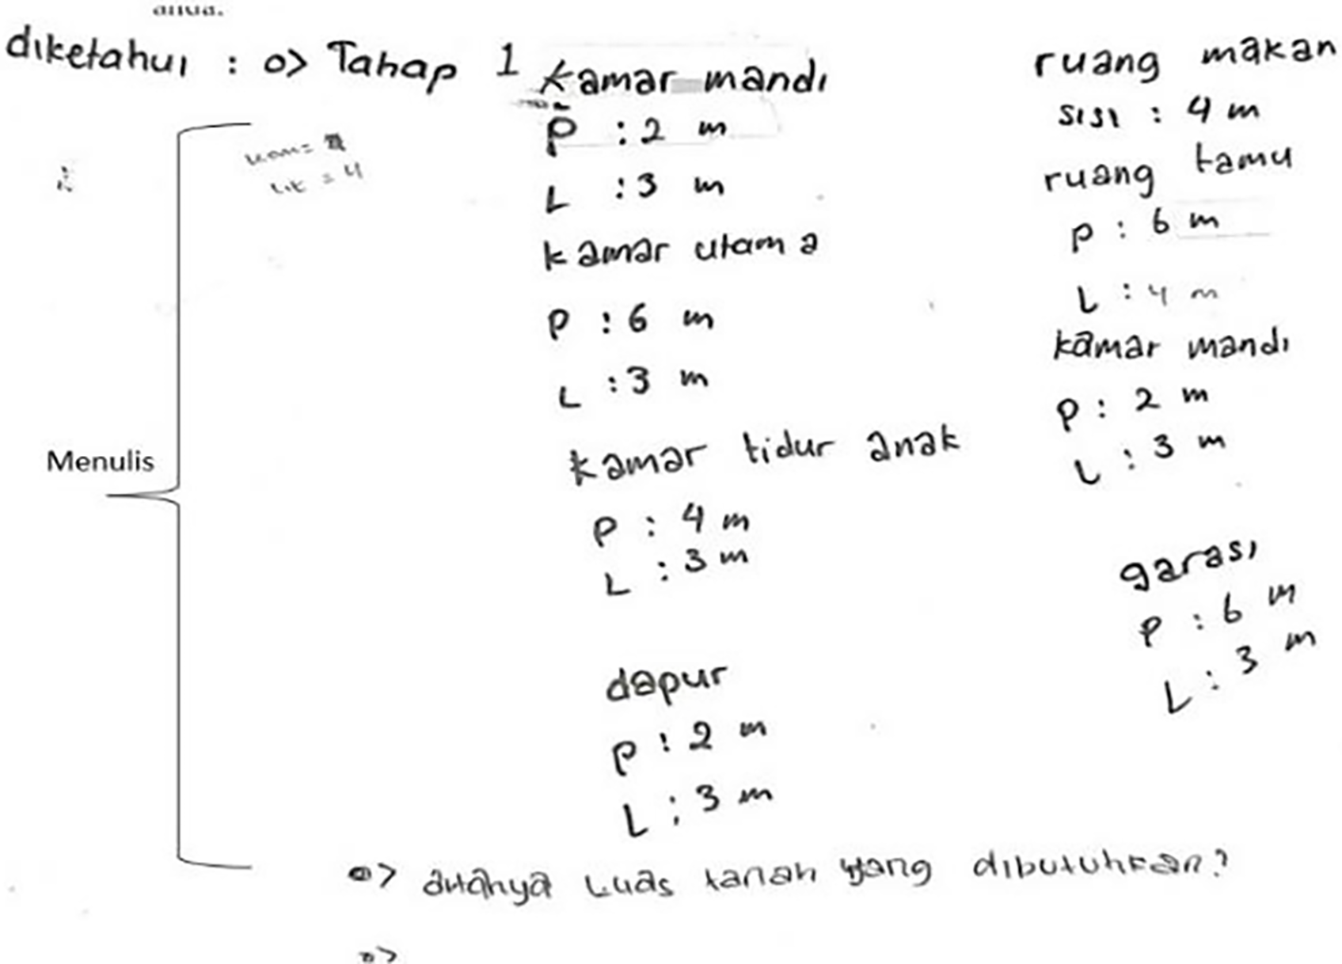 diketahui : o> Tahap 1
Kamar mandi
P : 2 m
L : 3 m
kamar utama
P : 6 m
L : 3 m
kamar tidur anak
P : 4 m
L : 3 m
dapur
P : 2 m
L : 3 m
ruang makan
sisi : 4 m
ruang tamu
P : 6 m
L : 4 m
kamar mandi
P : 2 m
L : 3 m
garasi
P : 6 m
L : 3 m
Menulis
o> ditanya Luas tanah yang dibutuhkan?
o>